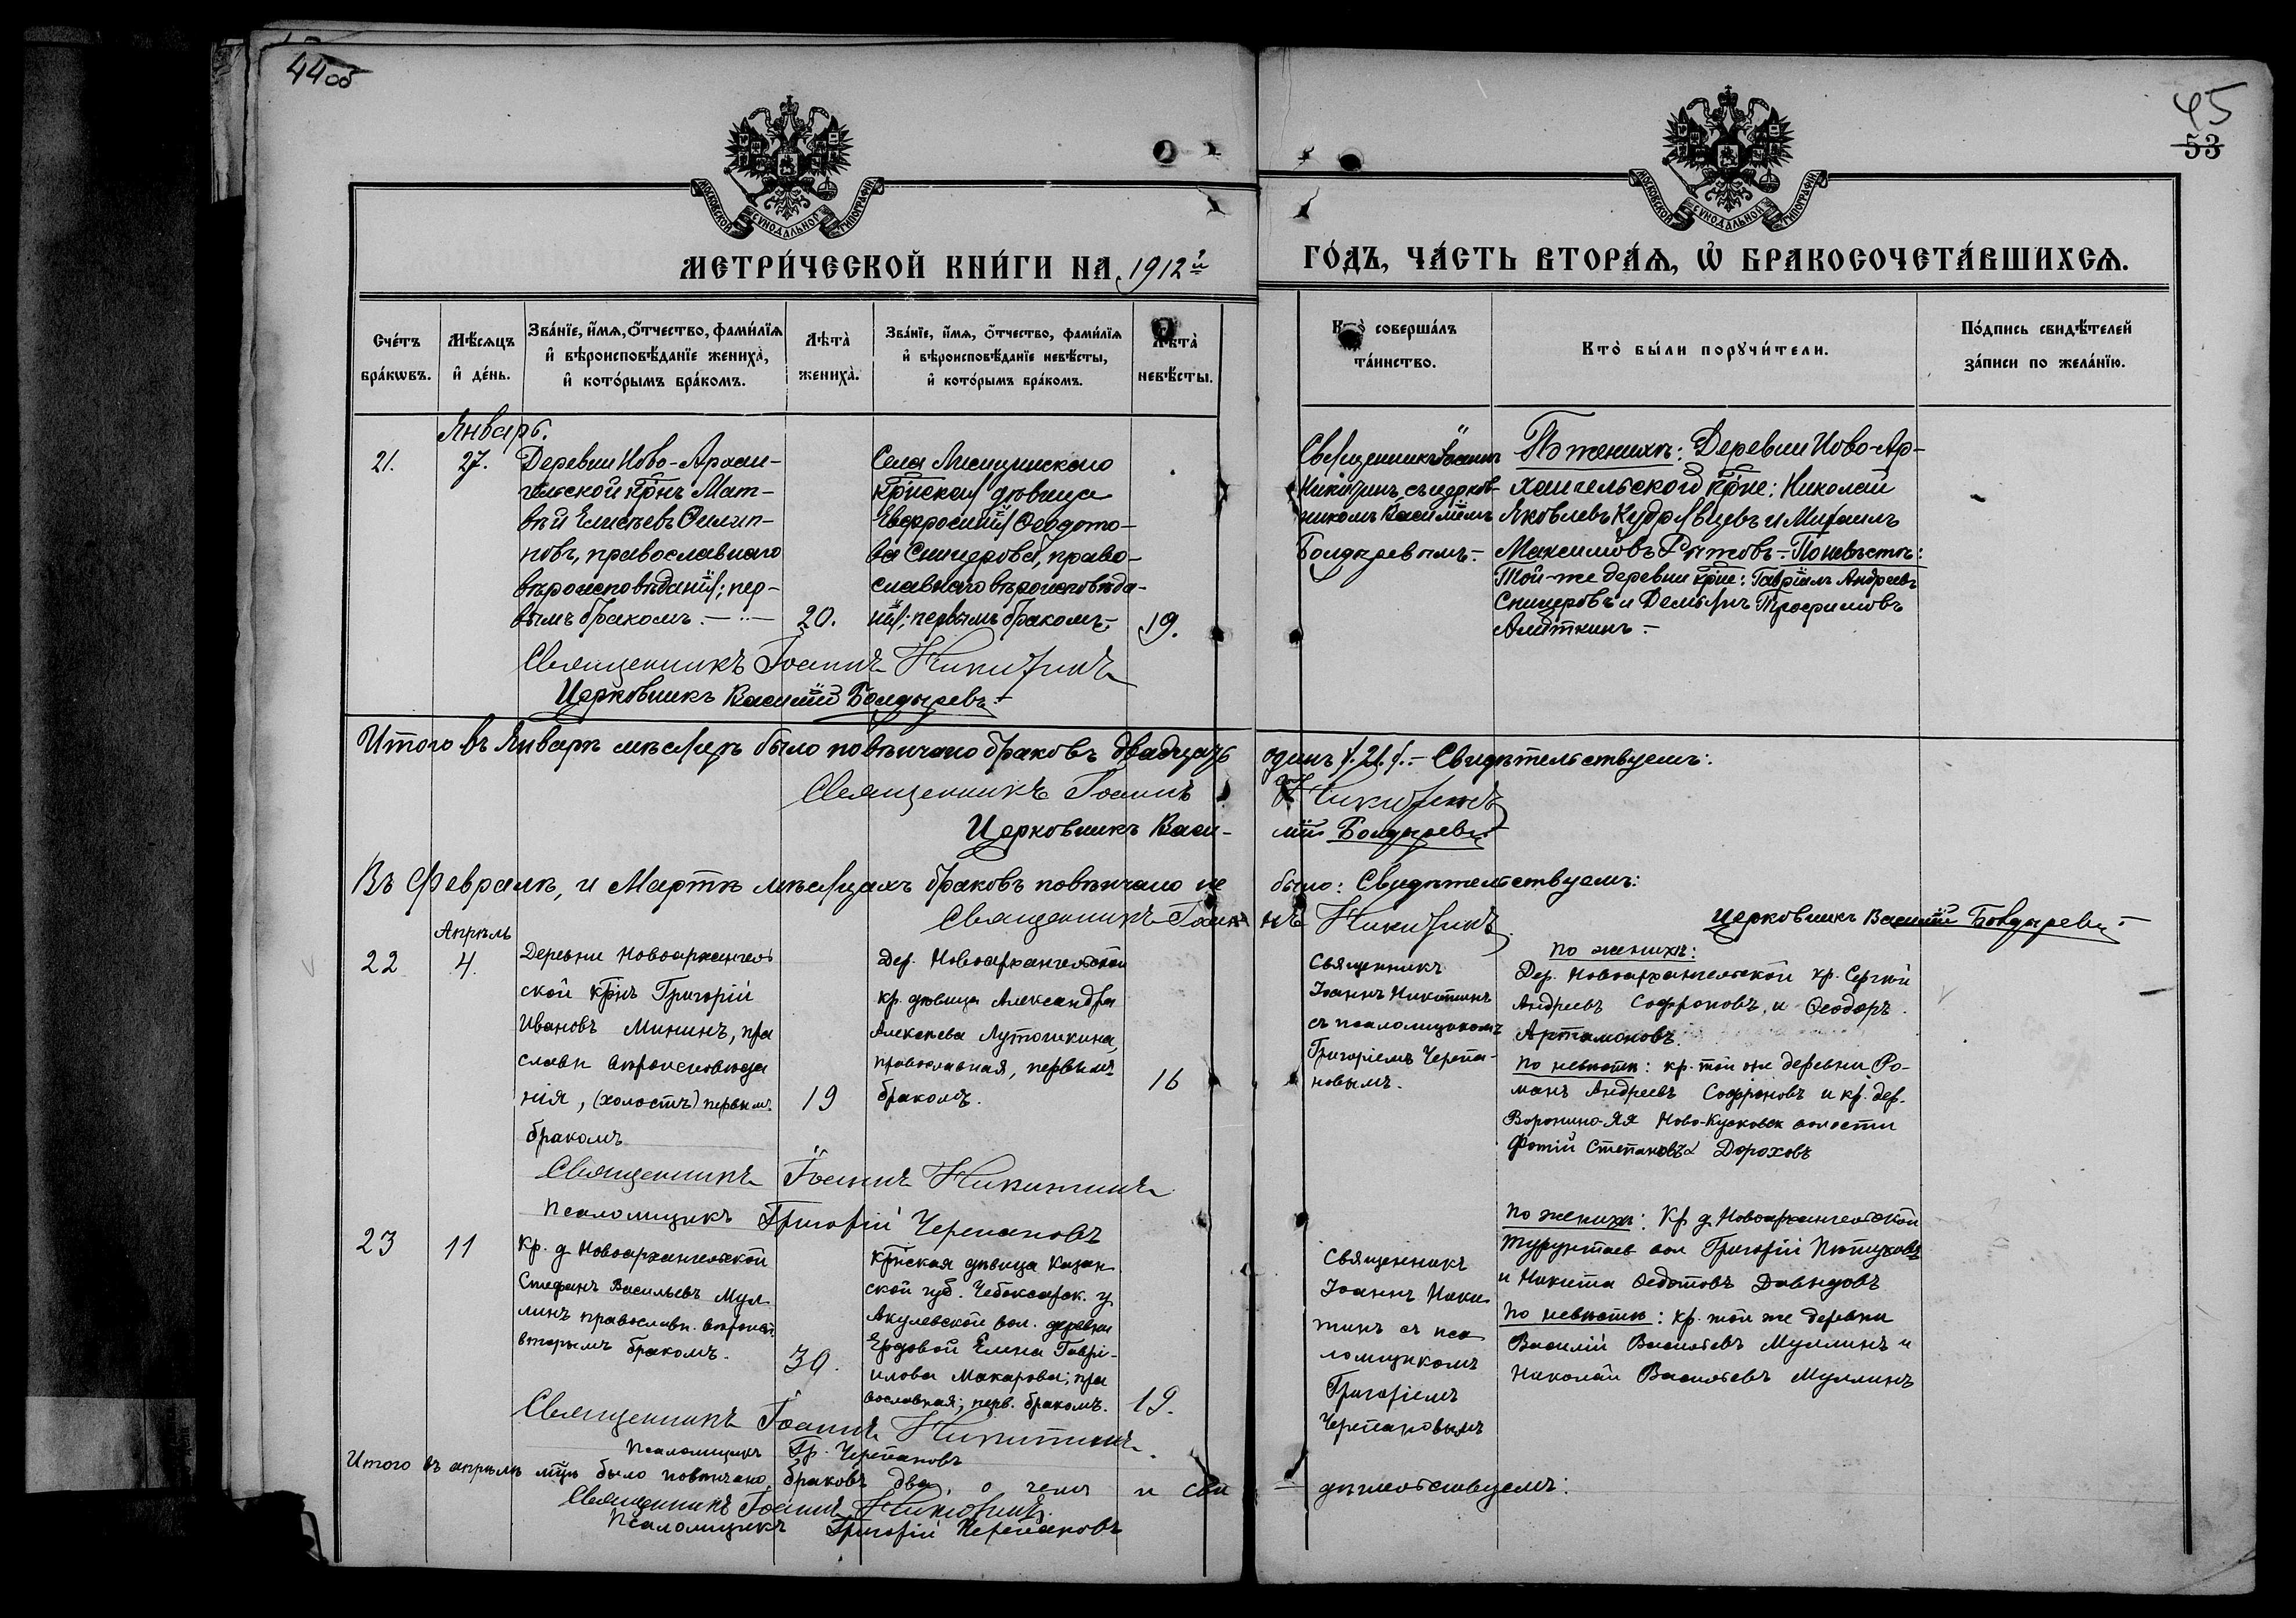 44об
45
53
МОСКОВСКОЙ СУНОДАЛЬНОЙ ТИПОГРАФІИ
МОСКОВСКОЙ СУНОДАЛЬНОЙ ТИПОГРАФІИ
МЕТРИ́ЧЕСКОЙ КНИ́ГИ НА 1912й
ГО́ДЪ, ЧА́СТЬ ВТОРА́Ѧ, Ѡ҆ БРАКОСОЧЕТА́ВШИХСѦ.
Сче́тъ бра́кѡвъ.
Мѣ́сѧцъ и҆ де́нь.
Зва́нїе, и҆́мѧ, ѻ҆́тчество, фами́лїѧ
и҆ вѣроисповѣ́данїе жениха̀,
и҆ кото́рымъ бра́комъ.
Лѣта̀ жениха̀.
Зва́нїе, и҆́мѧ, ѻ҆́тчество, фами́лїѧ
и҆ вѣроисповѣ́данїе невѣ́сты,
и҆ кото́рымъ бра́комъ.
Лѣта̀ невѣ́сты.
Кто̀ соверша́лъ
та́инство.
Кто̀ бы́ли порꙋчи́тели.
По́дпись свидѣ́телей
за́писи по жела́нїю.
Январь.
21.
27.
Деревни Ново-Архан-
гельской крнъ Мат-
вѣй Елисѣевъ Филип-
повъ, православнаго
вѣроисповѣданія; пер-
вымъ бракомъ. —
20.
Села
крнская дѣвица
Евфросинія Ѳеодото-
ва Снигерова, право-
славнаго вѣроисповѣда-
нія; первымъ бракомъ.
19.
Священникъ Іоаннъ
Никитинъ, съ церков-
никомъ Василіемъ
Болдыревымъ. —
По женихѣ: Деревни Ново-Ар-
хангельской крне: Николай
Яковлевъ Кудрявцевъ и Михаилъ
Максимовъ Рытовъ. — По невѣстѣ:
Той-же деревни крне: Гавріилъ Андреевъ
Снигеровъ и Демьянъ Трофимовъ
Священникъ Іоаннъ Никитинъ
Церковникъ Василій Болдыревъ
Итого въ Январѣ мѣсяцѣ было повѣнчано браковъ двадцать одинъ /.21./. — Свидѣтельствуемъ:
Священникъ Іоаннъ Никитинъ
Церковникъ Васи- лій Болдыревъ
Въ Февралѣ, и Мартѣ мѣсяцахъ браковъ повѣнчано не было: Свидѣтельствуемъ:
Священникъ Іоаннъ Никитинъ Церковникъ Василій Болдыревъ
Апрѣль
22
4.
Деревни Новоархангель
ской крнъ Григорій
Ивановъ Мининъ, пра
славн вѣроисповѣда
нія, (холостъ) первымъ
бракомъ
19
Дер. Новоархангельской
кр. дѣвица Александра
Алексѣева Лутошкина,
православная, первымъ
бракомъ.
16
Священникъ
Іоаннъ Никитинъ
съ псаломщикомъ
Григоріемъ Черепа-
новымъ.
По женихѣ:
Дер. Новоархангельской кр. Сергѣй
Андреевъ Софроновъ, и Ѳеодоръ
Артамоновъ.
По невѣстѣ: кр. той же деревни Ро-
манъ Андреевъ Софроновъ и кр. дер.
Воронино-Яя Ново-Кусковск волости
Фотій Степановъ Дороховъ
Священникъ Іоаннъ Никитинъ
Псаломщикъ Григорій Черепановъ
23
11
Кр. д Новоархангельской
Стефанъ Васильевъ Мул
линъ православн. вѣроисп
вторымъ бракомъ.
30.
Крнская дѣвица Казан
ской губ. Чебоксарск. у
Акулевской вол. деревни
Ердовой Елена Гаврі-
илова Макарова; пра
вославная; перв. бракомъ.
19.
Священникъ
Іоаннъ Ники
тинъ съ пса
ломщикомъ
Григоріемъ
Черепановымъ
По женихѣ: Кр д Новоархангельской
Турунтаев вол Григорій Пѣтуховъ
и Никита Ѳедотовъ Давыдовъ
По невѣстѣ: кр. той же деревни
Василій Васильевъ Муллинъ и
Николай Васильевъ Муллинъ
Священникъ Іоаннъ Никитинъ
Псаломщикъ Гр. Черепановъ
Итого въ апрѣлѣ мцѣ было повѣнчано браковъ два, о чемъ и сви — дѣтельствуемъ:
Священникъ Іоаннъ Никитинъ
Псаломщикъ Григорій Черепановъ